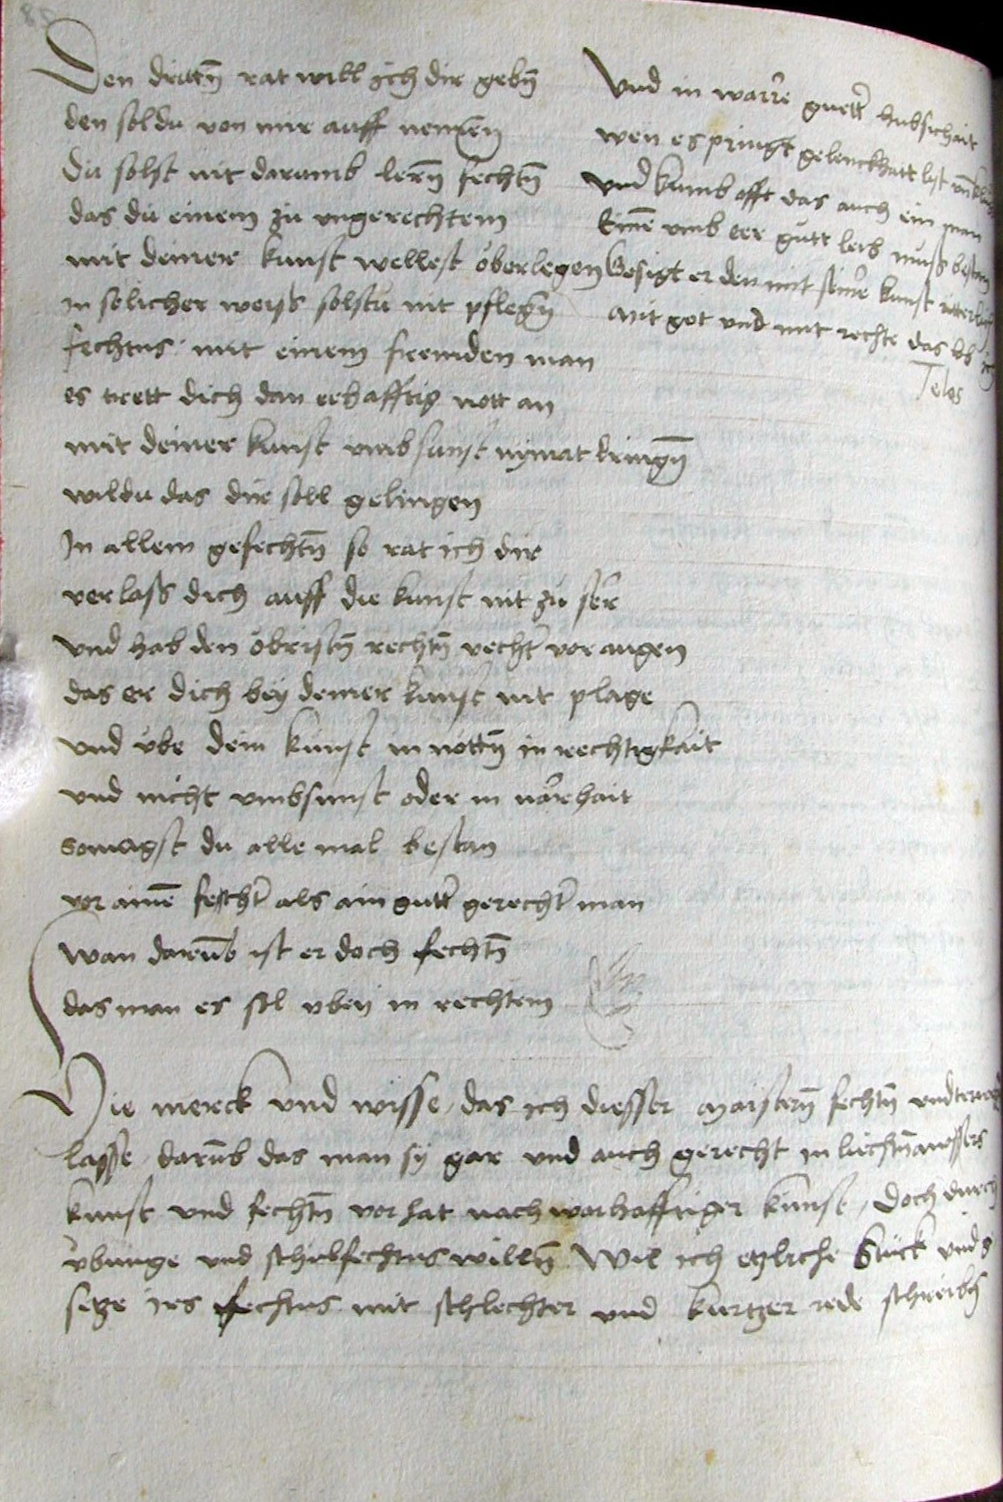 Den drittn̄ rat will ich dir gebn̄
den soldu von mir auff nemen
du solst nit darumb lern̄ fechtn̄
das du einem zu vngerechtem
mit deiner kunst wellest oberlegen
in solicher weyss solstu nit pflegn̄
fechtns mit einem fremden man
es trett dich dan erhafftig nott an
mit deiner kunst vmbsunst nymat bringn̄
wildu das dir soll gelingen
In allem gefechtn̄ so rat ich dir
verlass dich auff die kunst nit zu ser
vnd hab den obristn̄ rechtn̄ vechtr̄ vor augen
das er dich bey deiner kunst nit plage
vnd vbe dein kunst in nöttn̄ in rechtigkait
vnd nicht vmbsunst oder in narrhait
so magst du alle mal bestan
vor ainē fechtr̄ als ain guttr̄ gerechtr̄ man
wan darūb ist er doch fechtn̄
das man es sol vben in rechtem
Vnd in warre guettr̄ hubschait
wen es pringt gelenckhait list
vnd kumb offt das auch ein man
Einē vmb eer gutt leib muss bestan
Gesigt er den mit seinr̄ kunst ritterlich
Mit got vnd mit rechte das lob ich
Telos
Hie merck vnd wisse das ich diesser Maistern̄ fechtn̄ vndterwegn
lasse darūb das man sy gar vnd auch gerecht in liechtn̄awers
kunst vnd fechtn̄ vor hat nach warhafftiger kunst / Doch durch
vbunge vnd schulfechtns willn̄ Wil ich etzliche Stuck vnd g
setze ires fechtns mit schlechter vnd kurtzer rede schreibn̄